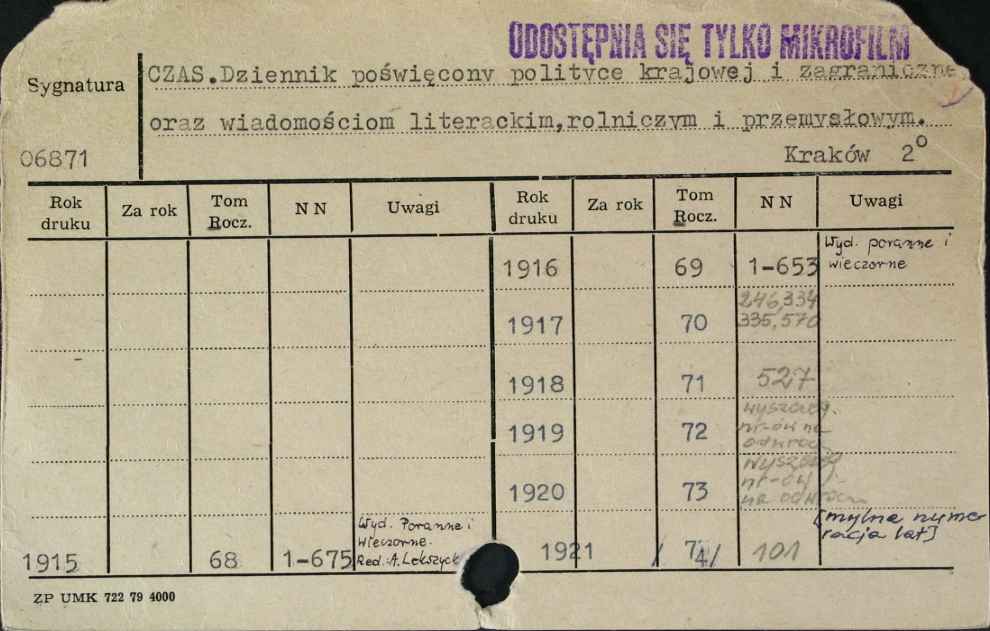 UDOSTĘPNIA SIĘ TYLKO MIKROFILM
Sygnatura
CZAS.Dziennik poświęcony polityce krajowej i zagraniczne
oraz wiadomościom literackim,rolniczym i przemysłowym.
06871
Kraków 2º
Rok druku Za rok Tom Rocz. NN Uwagi Rok druku Za rok Tom Rocz. NN Uwagi
1916 69 1-653 Wyd. poranne i
wieczorne
246,334
1917 70 335,570
1918 71 527
1919 72
nr-ów na
1920 73
nr-ów
na
Wyd. Poranne i
wieczorne.
[mylna nume
racja lat]
1915 68 1-675 Red. A. 1921 /74/ 101
ZP UMK 722 79 4000